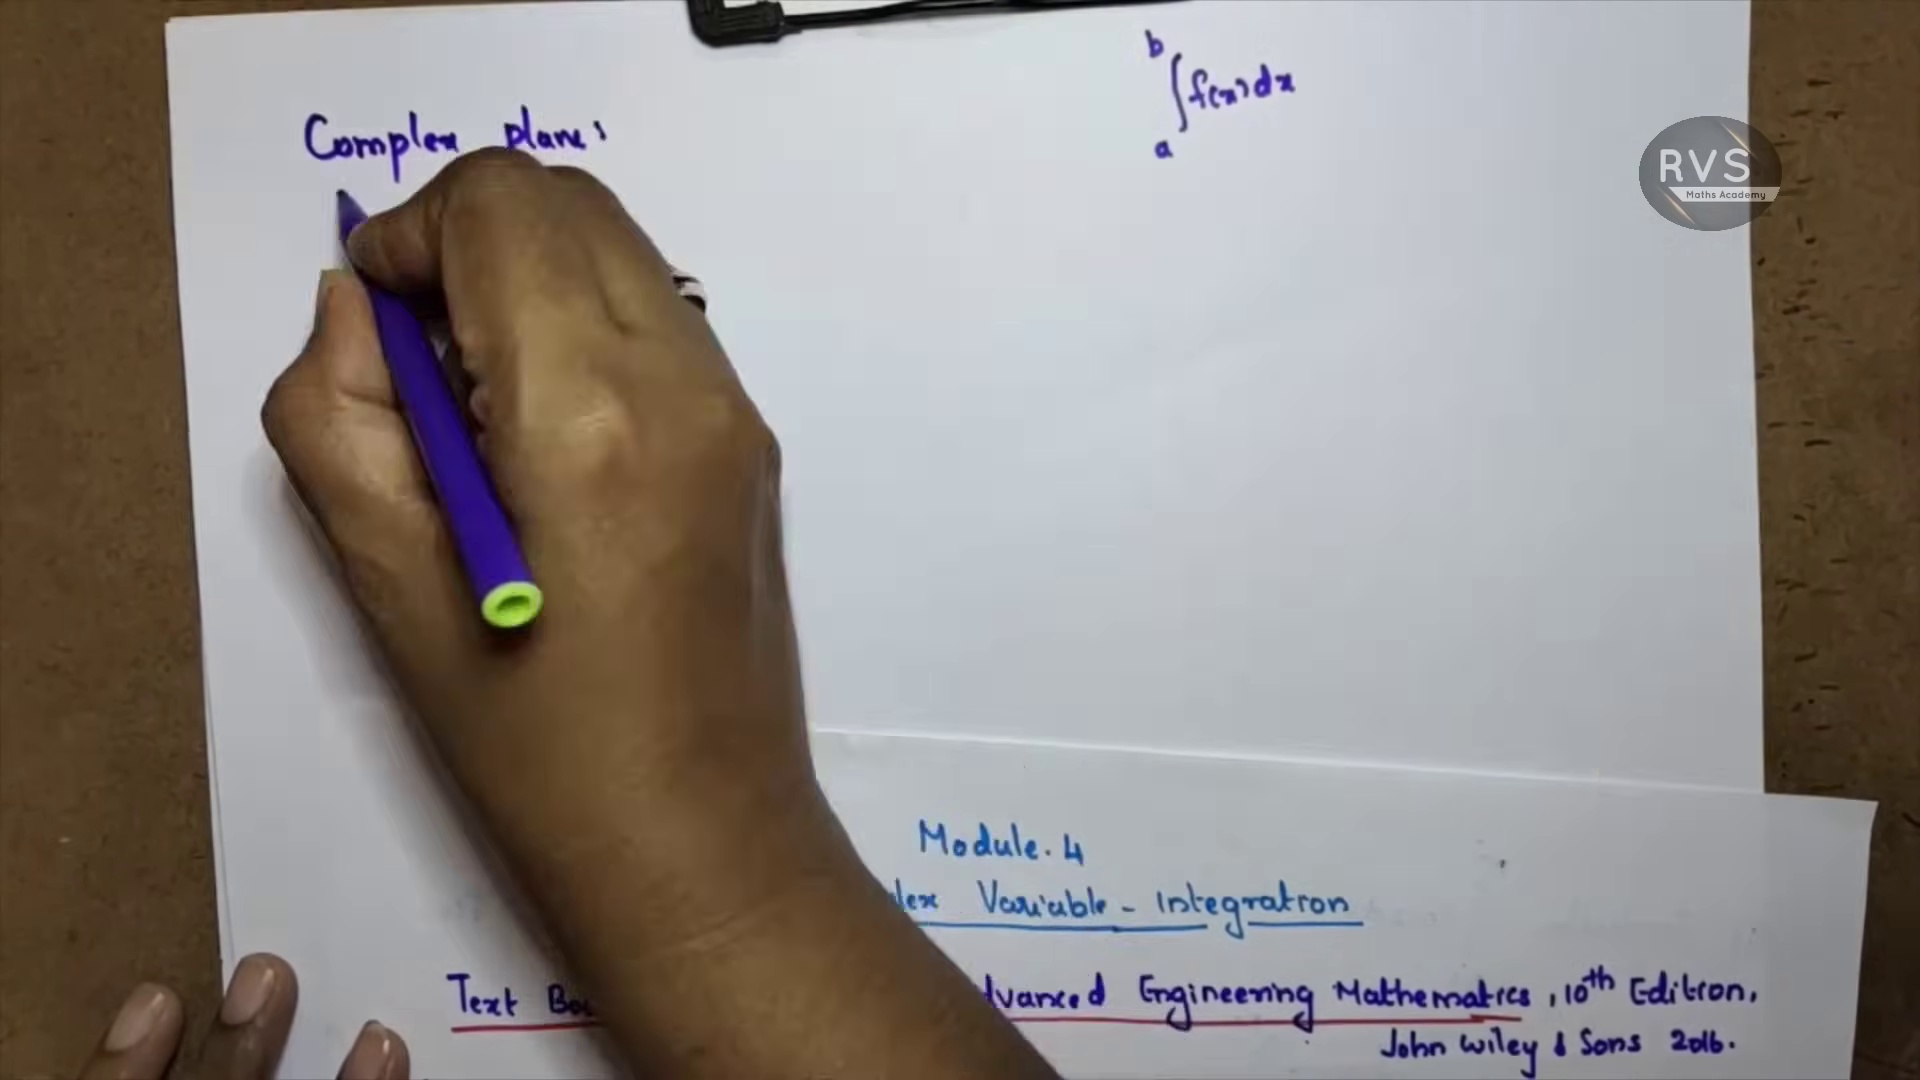 b
∫f(x)dx
a
Complex plane:
RVS
Maths Academy
Module. 4
lex Variable - Integration
Text Bo dvanced Engineering Mathematics, 10th Edition,
John Wiley & Sons 2016.